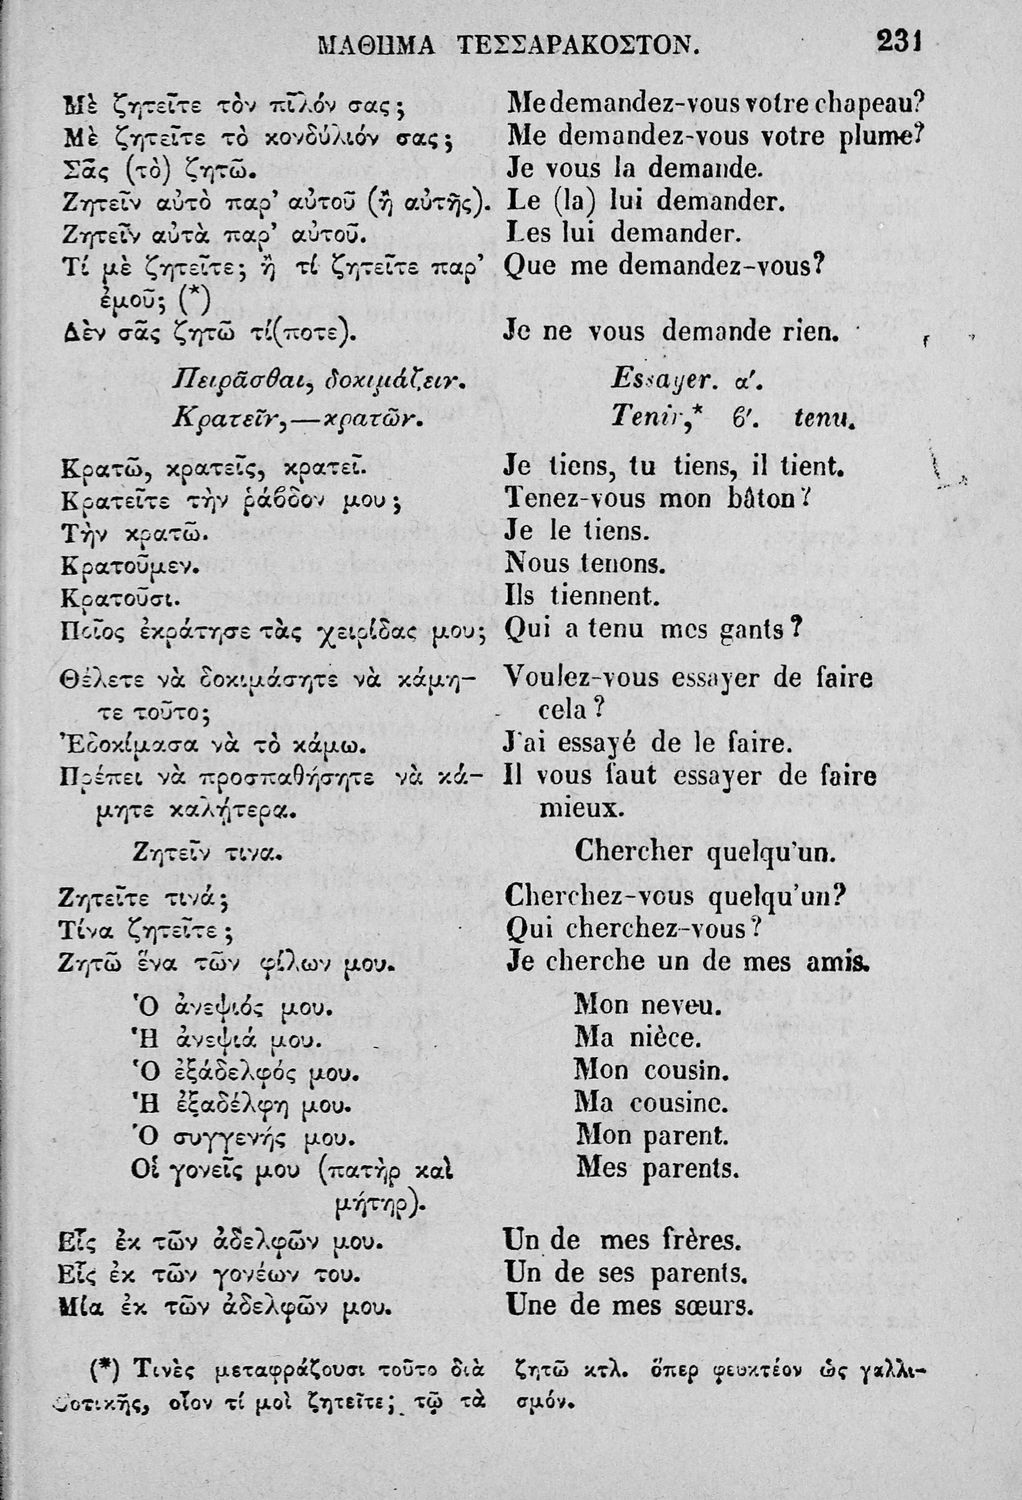 ΜΑΘΗΜΑ ΤΕΣΣΑΡΑΚΟΣΤΟΝ. 231
Μὲ ζητεῖτε τὸν πῖλόν σας; Me demandez-vous votre chapeau?
Μὲ ζητεῖτε τὸ κονδύλιόν σας; Me demandez-vous votre plume?
Σᾶς (τὸ) ζητῶ. Je vous la demande.
Ζητεῖν αὐτὸ παρ’ αὐτοῦ (ἢ αὐτῆς). Le (la) lui demander.
Ζητεῖν αὐτὰ παρ’ αὐτοῦ. Les lui demander.
Τί μὲ ζητεῖτε; ἢ τί ζητεῖτε παρ’ Que me demandez-vous?
ἐμοῦ; (*)
Δὲν σᾶς ζητῶ τί(ποτε). Je ne vous demande rien.
Πειρᾶσθαι, δοκιμάζειν. Essayer. α′.
Κρατεῖν,—κρατῶν. Tenir,* ϐ′. tenu.
Κρατῶ, κρατεῖς, κρατεῖ. Je tiens, tu tiens, il tient.
Κρατεῖτε τὴν ῥάϐδον μου; Tenez-vous mon bâton?
Τὴν κρατῶ. Je le tiens.
Κρατοῦμεν. Nous tenons.
Κρατοῦσι. Ils tiennent.
Ποῖος ἐκράτησε τὰς χειρίδας μου; Qui a tenu mes gants?
Θέλετε νὰ δοκιμάσητε νὰ κάμη- Voulez-vous essayer de faire
τε τοῦτο; cela?
Ἐδοκίμασα νὰ τὸ κάμω. J'ai essayé de le faire.
Πρέπει νὰ προσπαθήσητε νὰ κά- Il vous faut essayer de faire
μητε καλήτερα. mieux.
Ζητεῖν τινα. Chercher quelqu'un.
Ζητεῖτε τινά; Cherchez-vous quelqu'un?
Τίνα ζητεῖτε; Qui cherchez-vous?
Ζητῶ ἕνα τῶν φίλων μου. Je cherche un de mes amis.
Ὁ ἀνεψιός μου. Mon neveu.
Ἡ ἀνεψιά μου. Ma nièce.
Ὁ ἐξάδελφός μου. Mon cousin.
Ἡ ἐξαδέλφη μου. Ma cousine.
Ὁ συγγενής μου. Mon parent.
Οἱ γονεῖς μου (πατὴρ καὶ Mes parents.
μήτηρ).
Εἷς ἐκ τῶν ἀδελφῶν μου. Un de mes frères.
Εἷς ἐκ τῶν γονέων του. Un de ses parents.
Μία ἐκ τῶν ἀδελφῶν μου. Une de mes sœurs.
(*) Τινὲς μεταφράζουσι τοῦτο διὰ ζητῶ κτλ. ὅπερ φευκτέον ὡς γαλλι-
δοτικῆς, οἷον τί μοὶ ζητεῖτε; τῷ τὰ σμόν.